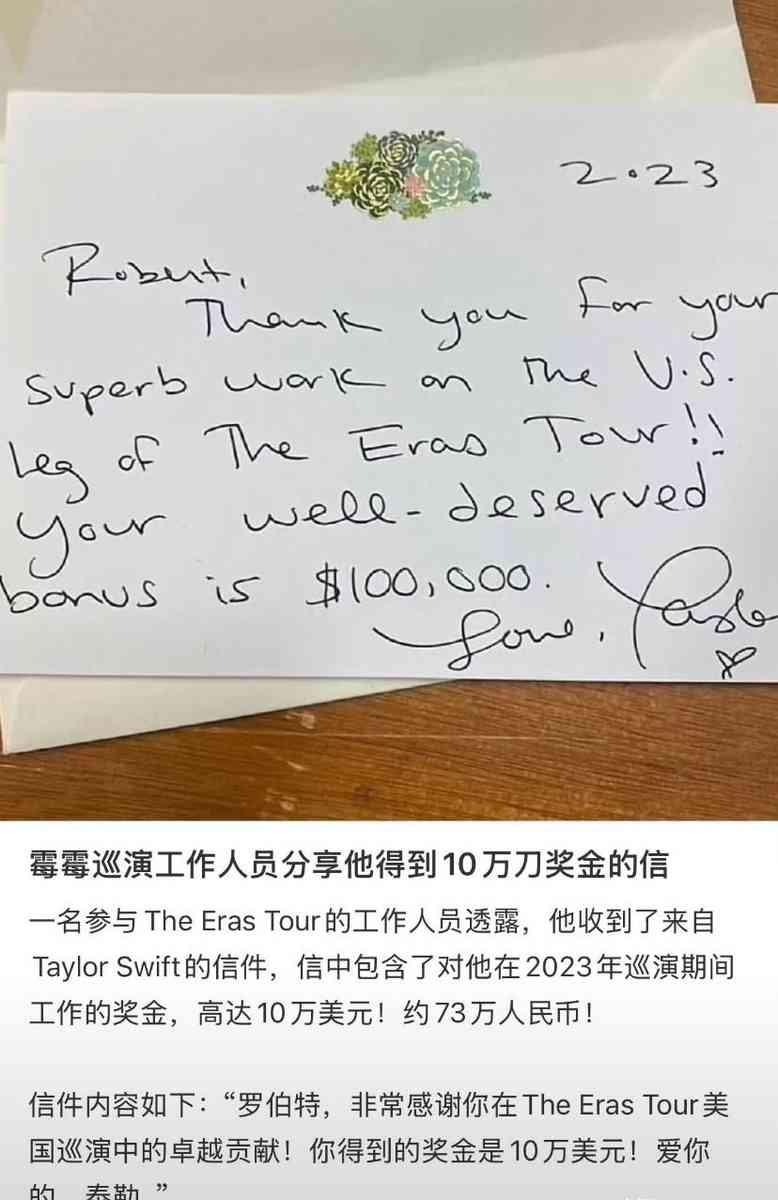 2.23
Robert,
Thank you for your
superb work on the U.S.
leg of The Eras Tour!!
your well-deserved
bonus is $100,000.
Love, Taylo
霉霉巡演工作人员分享他得到10万刀奖金的信
一名参与The Eras Tour的工作人员透露，他收到了来自
Taylor Swift的信件，信中包含了对他在2023年巡演期间
工作的奖金，高达10万美元！约73万人民币！
信件内容如下：“罗伯特，非常感谢你在The Eras Tour美
国巡演中的卓越贡献！你得到的奖金是10万美元！爱你
的，泰勒。”